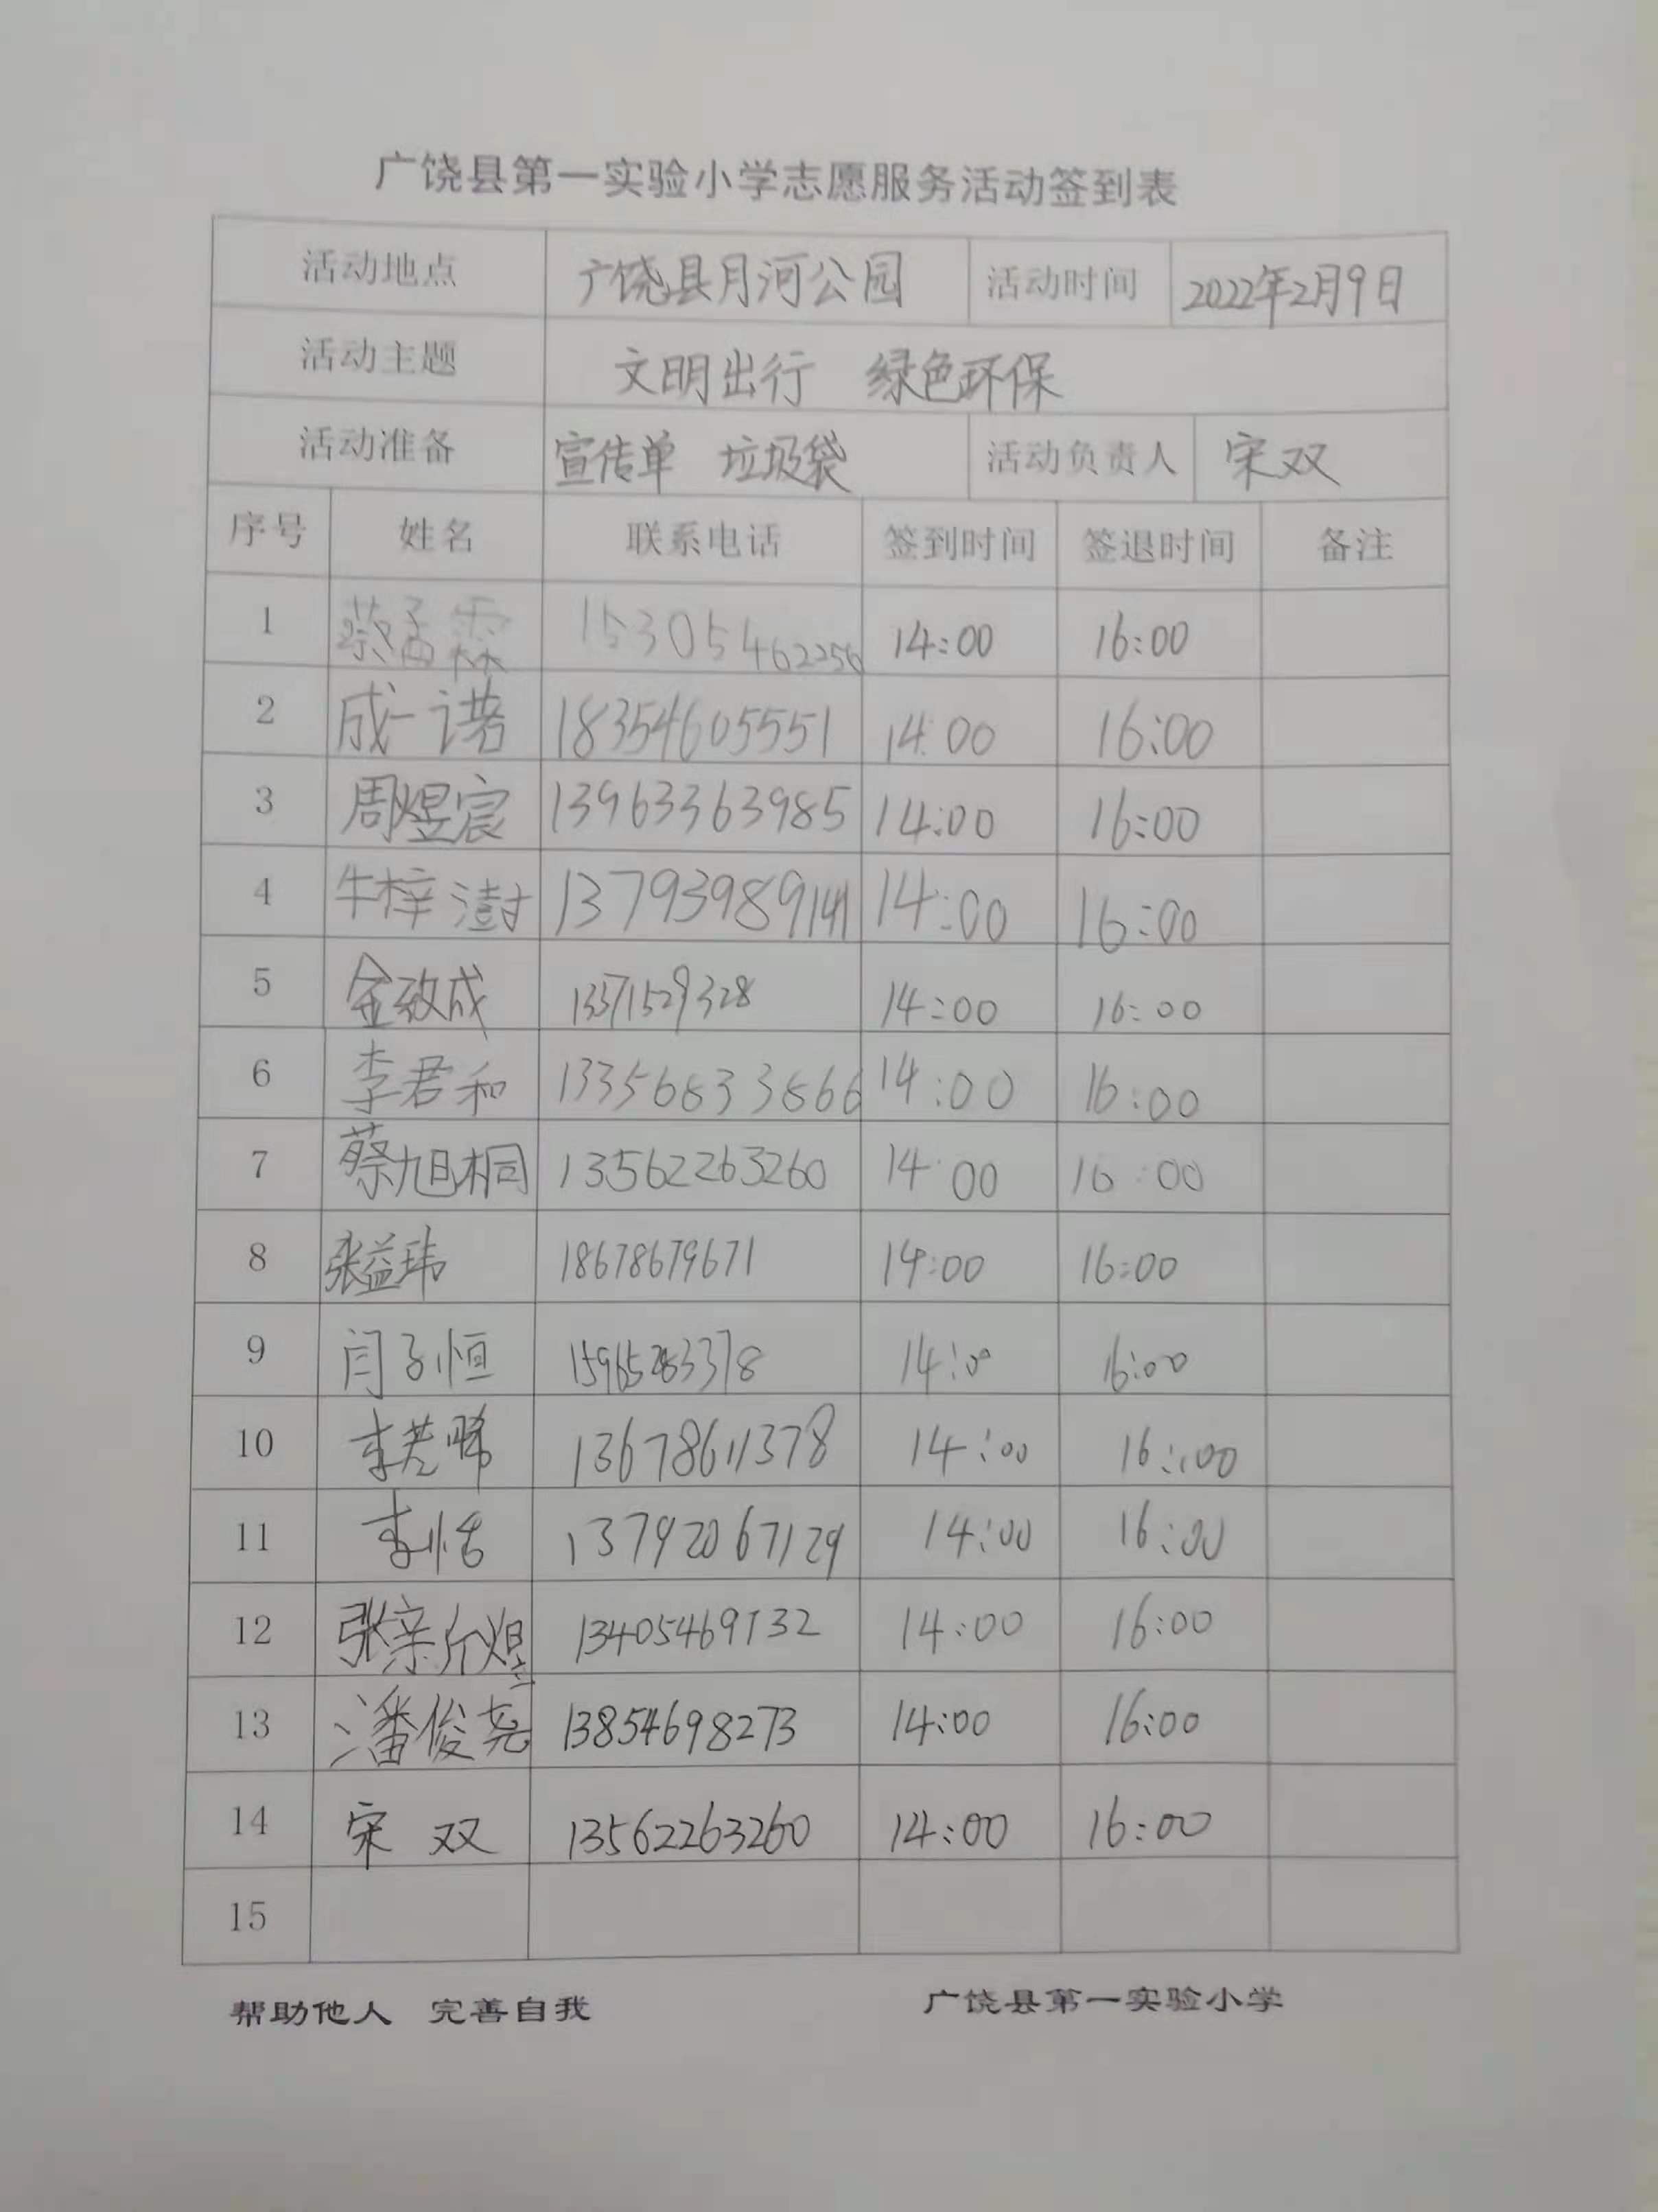 广饶县第一实验小学志愿服务活动签到表
活动地点 广饶县月河公园 活动时间 2022年2月9日
活动主题 文明出行 绿色环保
活动准备 宣传单 垃圾袋 活动负责人 宋双
序号 姓名 联系电话 签到时间 签退时间 备注
1 蔡孟霖 15305462256 14:00 16:00
2 成一诺 18354605551 14:00 16:00
3 周煜宸 13963363985 14:00 16:00
4 牛梓澍 13793989141 14:00 16:00
5 金致成 13371529328 14:00 16:00
6 李君和 13356833866 14:00 16:00
7 蔡旭桐 13562263260 14:00 16:00
8 张益玮 18678679671 14:00 16:00
9 闫子恒 14:00 16:00
10 李 13678611378 14:00 16:00
11 李恬 13792067129 14:00 16:00
12 张亲煜 13405469132 14:00 16:00
13 潘俊尧 13854698273 14:00 16:00
14 宋双 13562263260 14:00 16:00
15
帮助他人 完善自我 广饶县第一实验小学